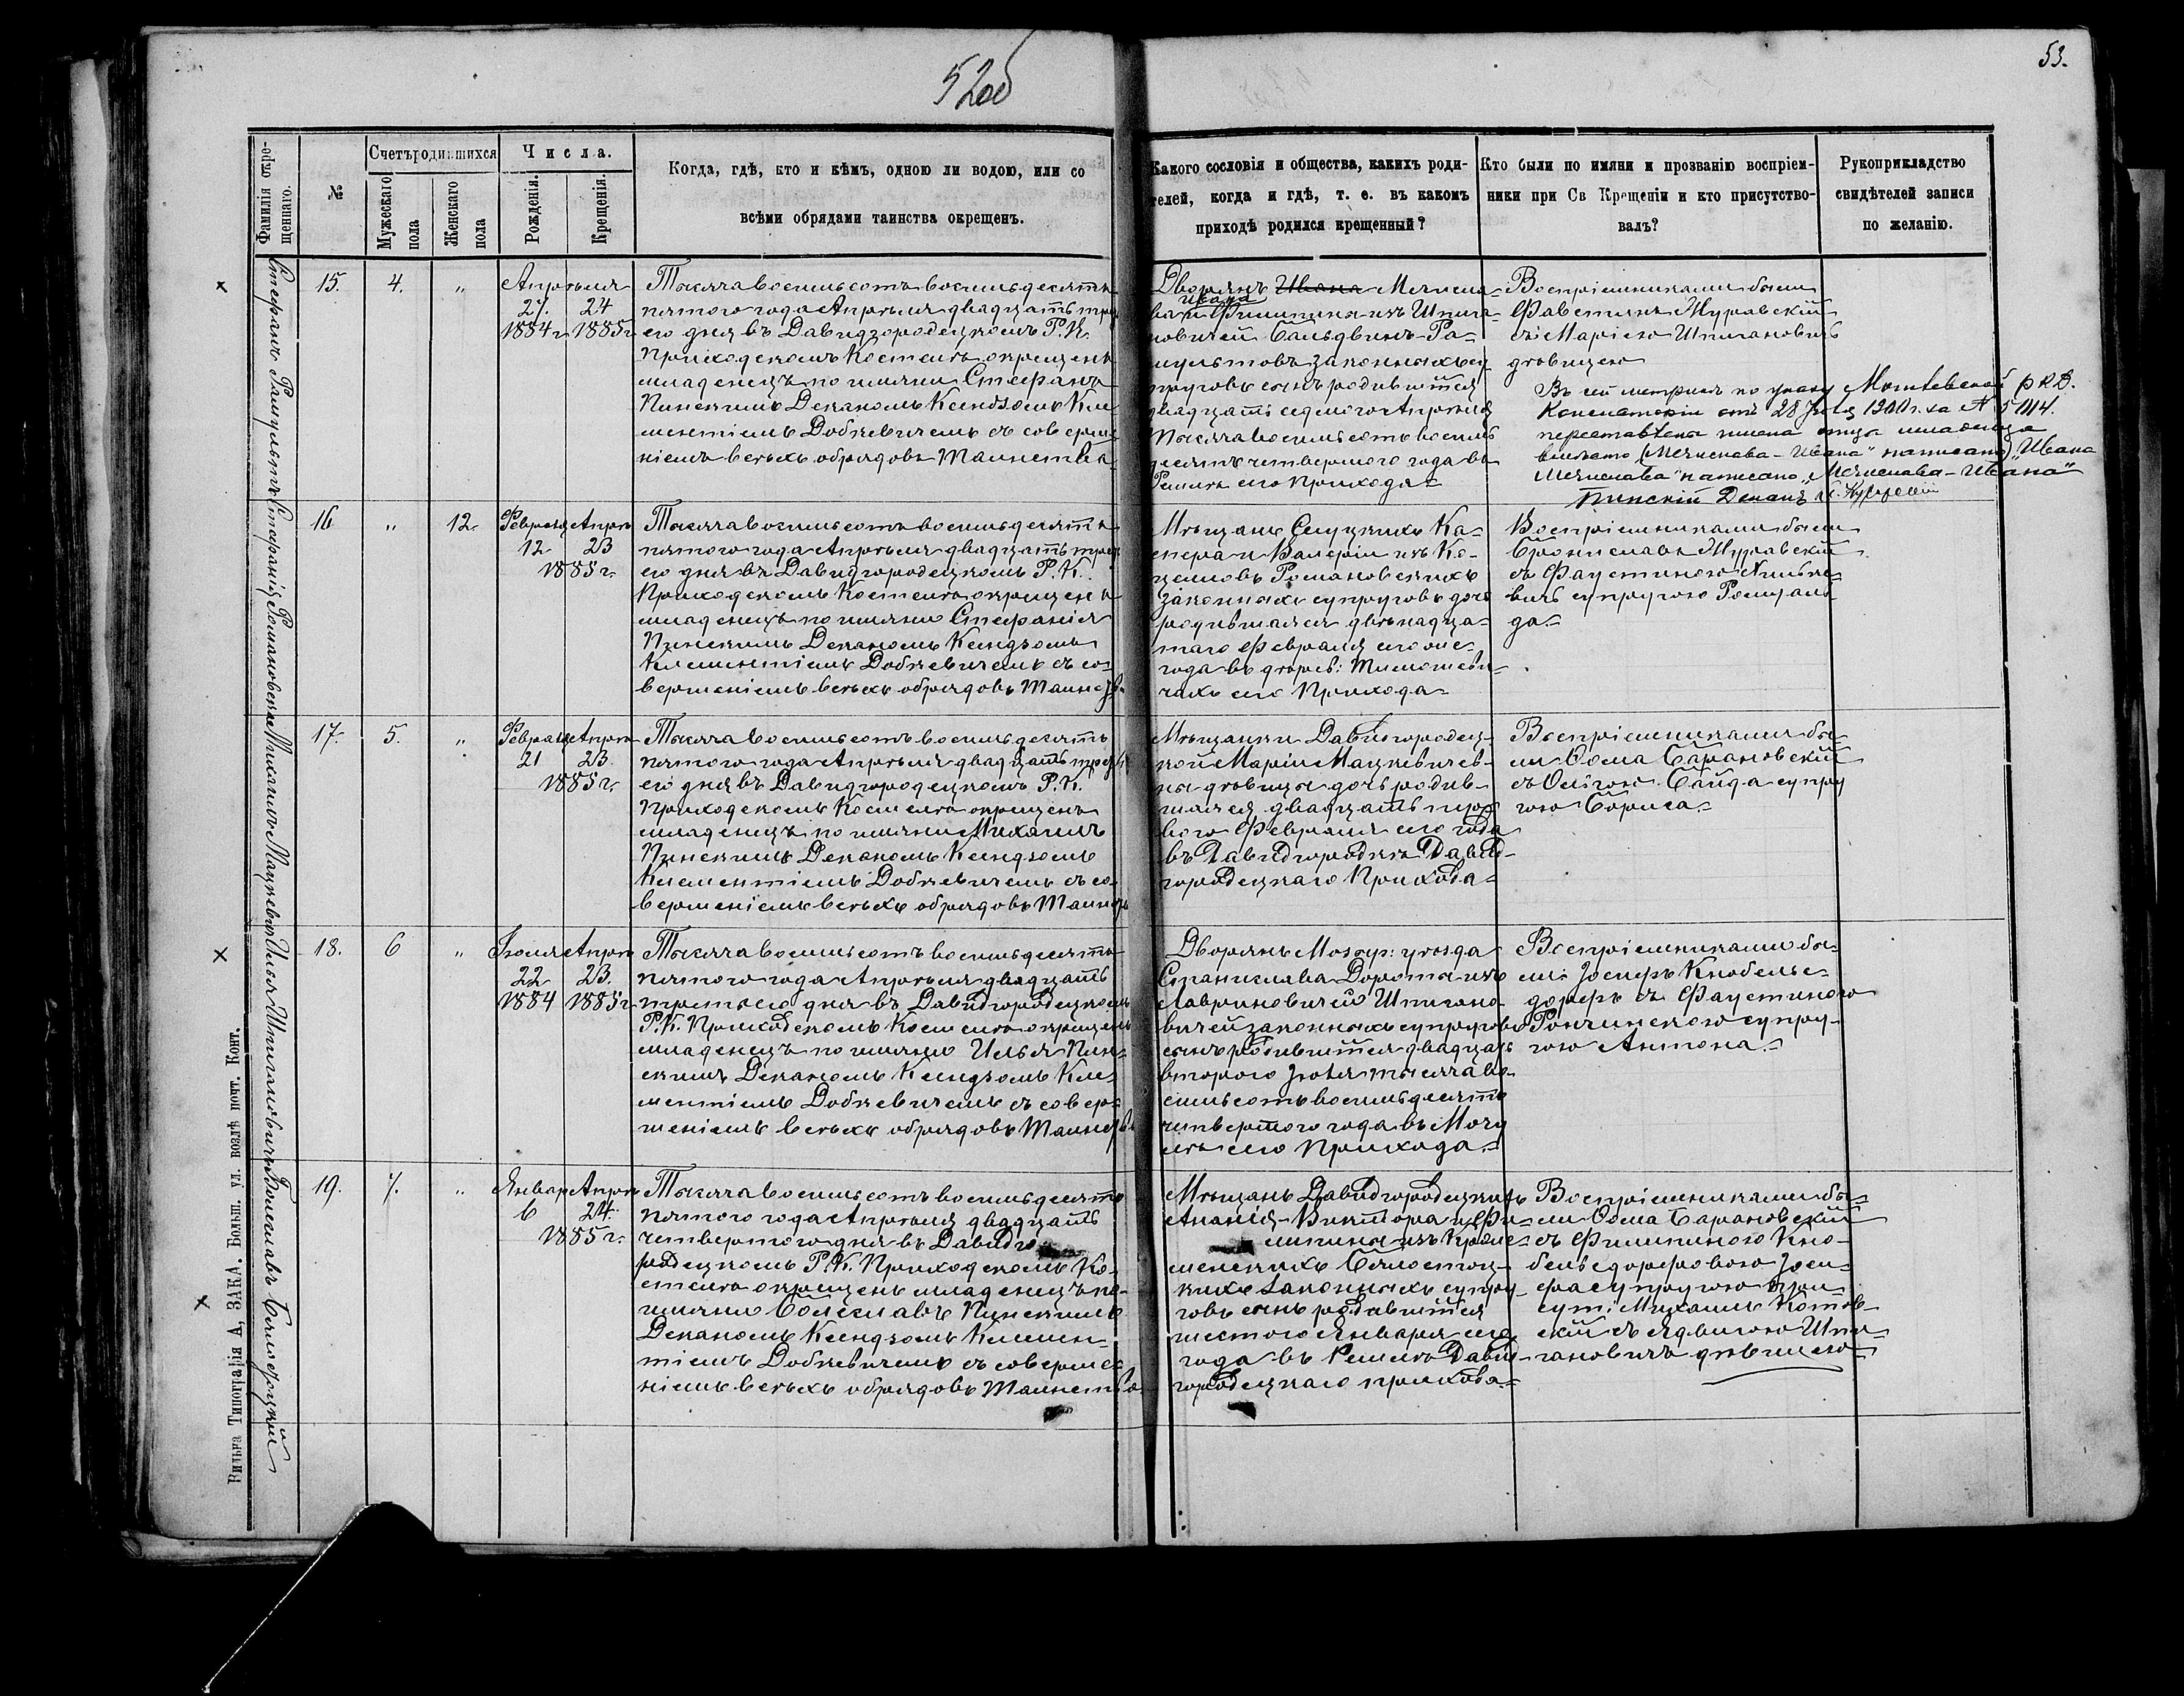 52об
53.
Фамилія кре-
щенаго.
№
Счетъ родившихся
Мужескаго
пола
Женскаго
пола
Числа.
Рожденія.
Крещенія.
Когда, гдѣ, кто и кѣмъ, одною ли водою, или со
всѣми обрядами таинства окрещенъ.
Какого сословія и общества, какихъ роди-
телей, когда и гдѣ, т. е. въ какомъ
приходѣ родился крещенный?
Кто были по имяни и прозванію воспріем-
ники при Св Крещеніи и кто присутство-
валъ?
Рукоприкладство
свидѣтелей записи
по желанію.
Стефанъ Рамультъ
15.
4.
"
Апрѣля
27. 24
1884 г. 1885 г.
Тысяча восемьсотъ восемьдесятъ
пятого года Апрѣля двадцать треть
его дня въ Давидгородецкомъ Р. К.
Приходскомъ Костелѣ окрещенъ
младенецъ по имяни Стефанъ
Пинскимъ Деканомъ Ксендзомъ Кле-
ментіемъ Добкевичемъ съ соверше
ніемъ всѣхъ обрядовъ Таинства
Дворянъ Ивана Мечисла-
Ивана
ва и Филипины изъ Шпига-
новичей Бальдвинъ-Ра-
мультовъ законныхъ су
пруговъ сынъ родившійся
двадцать седьмого Апрѣля
тысяча восемьсотъ восемь
десятъ четвертого года въ
сего Прихода
Воспріемниками были
Фавстинъ Муравскій
съ Маріею Шпигановичъ
дѣвицею
Въ сей метрикѣ по указу Могилевской Р К Д.
Консисторіи отъ 28 1900 г. за № 5114.
переставлены имена отца младенца
вмѣсто "Мечислава-Ивана" написано "Ивана
Мечислава" написано "Мечислава-Ивана"
Пинскій Деканъ К.
Стефанія Романовская
16
"
12.
Февраля Апрѣля
12 23
1885 г.
Тысяча восемьсотъ восемьдесятъ
пятого года Апрѣля двадцать треть
его дня въ Давидгородецкомъ Р. К.
Приходскомъ Костелѣ окрещенъ
младенецъ по имяни Стефанія
Пинскимъ Деканомъ Ксендзомъ
Клементіемъ Добкевичемъ съ со-
вершеніемъ всѣхъ обрядовъ Таинства
Мѣщанъ Слуцкихъ Ка-
спера и Валеріи изъ Ко-
Романовскихъ
законныхъ супруговъ дочь
родившаяся двѣнадца-
таго Февраля сего
года въ дерев:
чахъ сего Прихода
Воспріемниками были
Брониславъ Муравскій
съ Фаустиною
вичъ супругою Ромуаль
да.
Михаилъ Мацкевичъ
17.
5.
"
Февраля Апрѣля
21 23.
1885 г.
Тысяча восемьсотъ восемьдесятъ
пятого года Апрѣля двадцать треть
его дня въ Давидгородецкомъ Р. К.
Приходскомъ Костелѣ окрещенъ
младенецъ по имяни Михаилъ
Пинскимъ Деканомъ Ксендзомъ
Клементіемъ Добкевичемъ съ со-
вершеніемъ всѣхъ обрядовъ Таинства
Мѣщанки Давидгородец-
кой Маріи Мацкевичев-
ны дѣвицы дочь родив-
шаяся двадцать пер-
вого Февраля сего года
въ Давидгородкѣ Давид-
городецкаго Прихода
Воспріемниками бы-
ли Ѳома Барановскій
съ Ольгою Байда супру
гою Бориса.
Илья Шпигановичъ
18.
6
"
Іюля Апрѣля
22 23.
1884 1885 г.
Тысяча восемьсотъ восемьдесятъ
пятого года Апрѣля двадцать
третьего дня въ Давидгородецкомъ
Р. К. Приходскомъ Костелѣ окрещенъ
младенецъ по имяни Илья Пин-
скимъ Деканомъ Ксендзомъ Кле-
ментіемъ Добкевичемъ съ совер-
шеніемъ всѣхъ обрядовъ Таинства
Дворянъ Мозыр: уѣзда
Станислава Дороты изъ
Лавриновичей Шпигано-
вичей законныхъ супруговъ
сынъ родившійся двадцать
второго Іюля тысяча во-
семьсотъ восемьдесятъ
четвертого года въ
сего Прихода.
Воспріемниками бы-
ли Іосифъ Кнобельс-
дорфъ съ Фаустиною
супру-
гою Антона.
Болеславъ Бѣлостоцкій
19.
7.
"
Январ Апрѣля
6 24
1885 г.
Тысяча восемьсотъ восемьдесятъ
пятого года Апрѣля двадцать
четвертого дня въ Давидго
родецкомъ Р. К. Приходскомъ Ко-
стелѣ окрещенъ младенецъ по
имяни Болеславъ Пинскимъ
Деканомъ Ксендзомъ Клемен-
тіемъ Добкевичемъ съ соверше
ніемъ всѣхъ обрядовъ Таинства
Мѣщанъ Давидгородецкихъ
Ананія-Виктора и Фи-
липины изъ
Бѣлостоц-
кихъ законныхъ супру-
говъ сынъ родившійся
шестого Января сего
года въ Давид-
городецкаго прихода.
Воспріемниками бы-
ли Ѳома Барановскій
съ Филипиною Кно-
бельсдорфовою Іоси-
фа супругою При-
сут: Михаилъ Котов-
скій съ Ядвигою Шпи-
гановичъ дѣвицею
Вильна Типографія А, ЗАКА. Больш. ул. возлѣ почт. Конт.